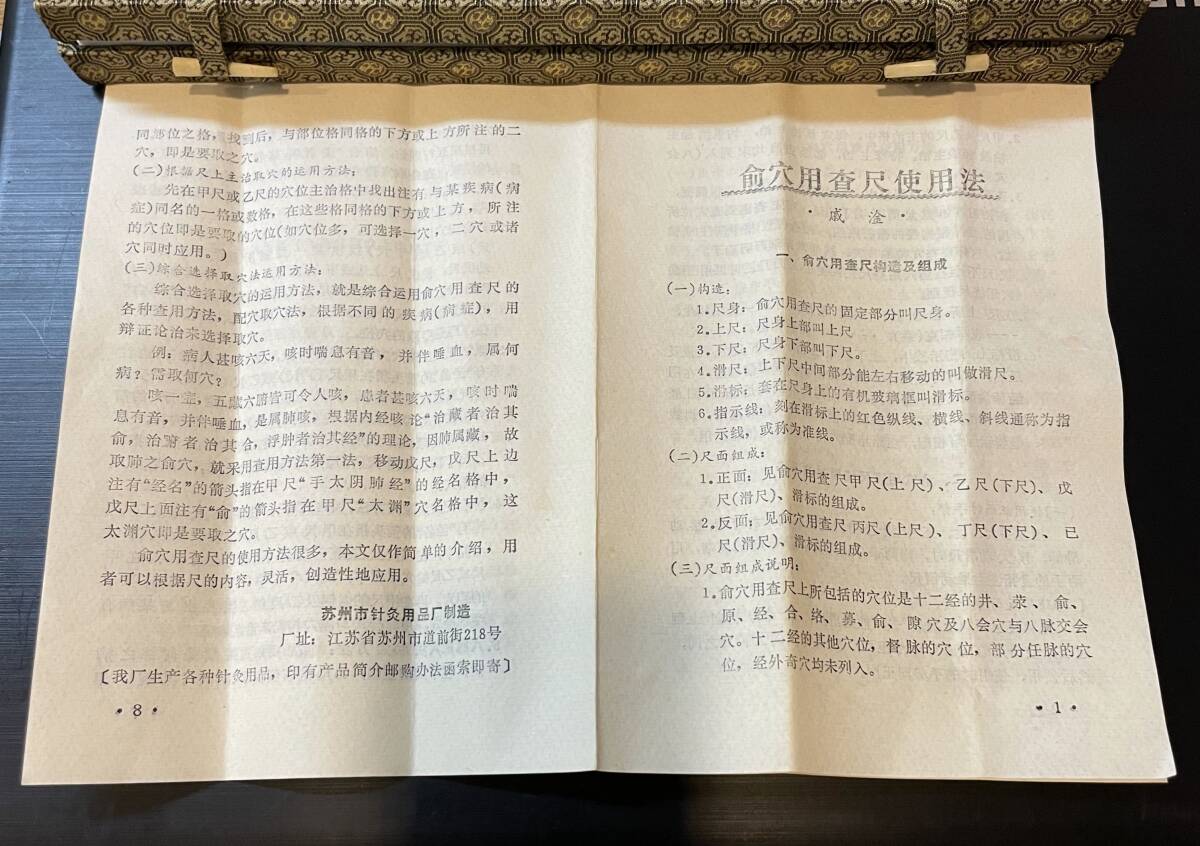 同部位之格，找到后，与部位格同格的下方或上方所注的二
穴，即是要取之穴。
(二)根据尺上主治取穴的运用方法：
先在甲尺或乙尺的穴位主治格中找出注有与某疾病(病
症)同名的一格或数格，在这些格同格的下方或上方，所注
的穴位即是要取的穴位(如穴位多，可选择一穴，二穴或诸
穴同时应用。)
(三)综合选择取穴法运用方法：
综合选择取穴的运用方法，就是综合运用俞穴用查尺的
各种查用方法，配穴取穴法，根据不同的疾病(病症)，用
辩证论治来选择取穴。
例：病人甚咳六天，咳时喘息有音，并伴唾血，属何
病？需取何穴？
咳一症，五藏六腑皆可令人咳，患者甚咳六天，咳时喘
息有音，并伴唾血，是属肺咳，根据内经咳论“治藏者治其
俞，治腑者治其合，浮肿者治其经”的理论，因肺属藏，故
取肺之俞穴，就采用查用方法第一法，移动戊尺，戊尺上边
注有“经名”的箭头指在甲尺“手太阴肺经”的经名格中，
戊尺上面注有“俞”的箭头指在甲尺“太渊”穴名格中，这
太渊穴即是要取之穴。
俞穴用查尺的使用方法很多，本文仅作简单的介绍，用
者可以根据尺的内容，灵活，创造性地应用。
苏州市针灸用品厂制造
厂址：江苏省苏州市道前街218号
〔我厂生产各种针灸用品，印有产品简介邮购办法函索即寄〕
• 8 •
俞穴用查尺使用法
·戚淦·
一、俞穴用查尺构造及组成
(一)构造：
1.尺身：俞穴用查尺的固定部分叫尺身。
2.上尺：尺身上部叫上尺
3.下尺：尺身下部叫下尺。
4.滑尺：上下尺中间部分能左右移动的叫做滑尺。
5.滑标：套在尺身上的有机玻璃框叫滑标。
6.指示线：刻在滑标上的红色纵线、横线、斜线通称为指
示线，或称为准线。
(二)尺面组成：
1.正面：见俞穴用查尺甲尺(上尺)、乙尺(下尺)、戊
尺(滑尺)、滑标的组成。
2.反面：见俞穴用查尺丙尺(上尺)、丁尺(下尺)、已
尺(滑尺)、滑标的组成。
(三)尺面组成说明：
1.俞穴用查尺上所包括的穴位是十二经的井、荥、俞、
原、经、合、络、募、俞、隙穴及八会穴与八脉交会
穴。十二经的其他穴位，督脉的穴位，部分任脉的穴
位，经外奇穴均未列入。
• 1 •